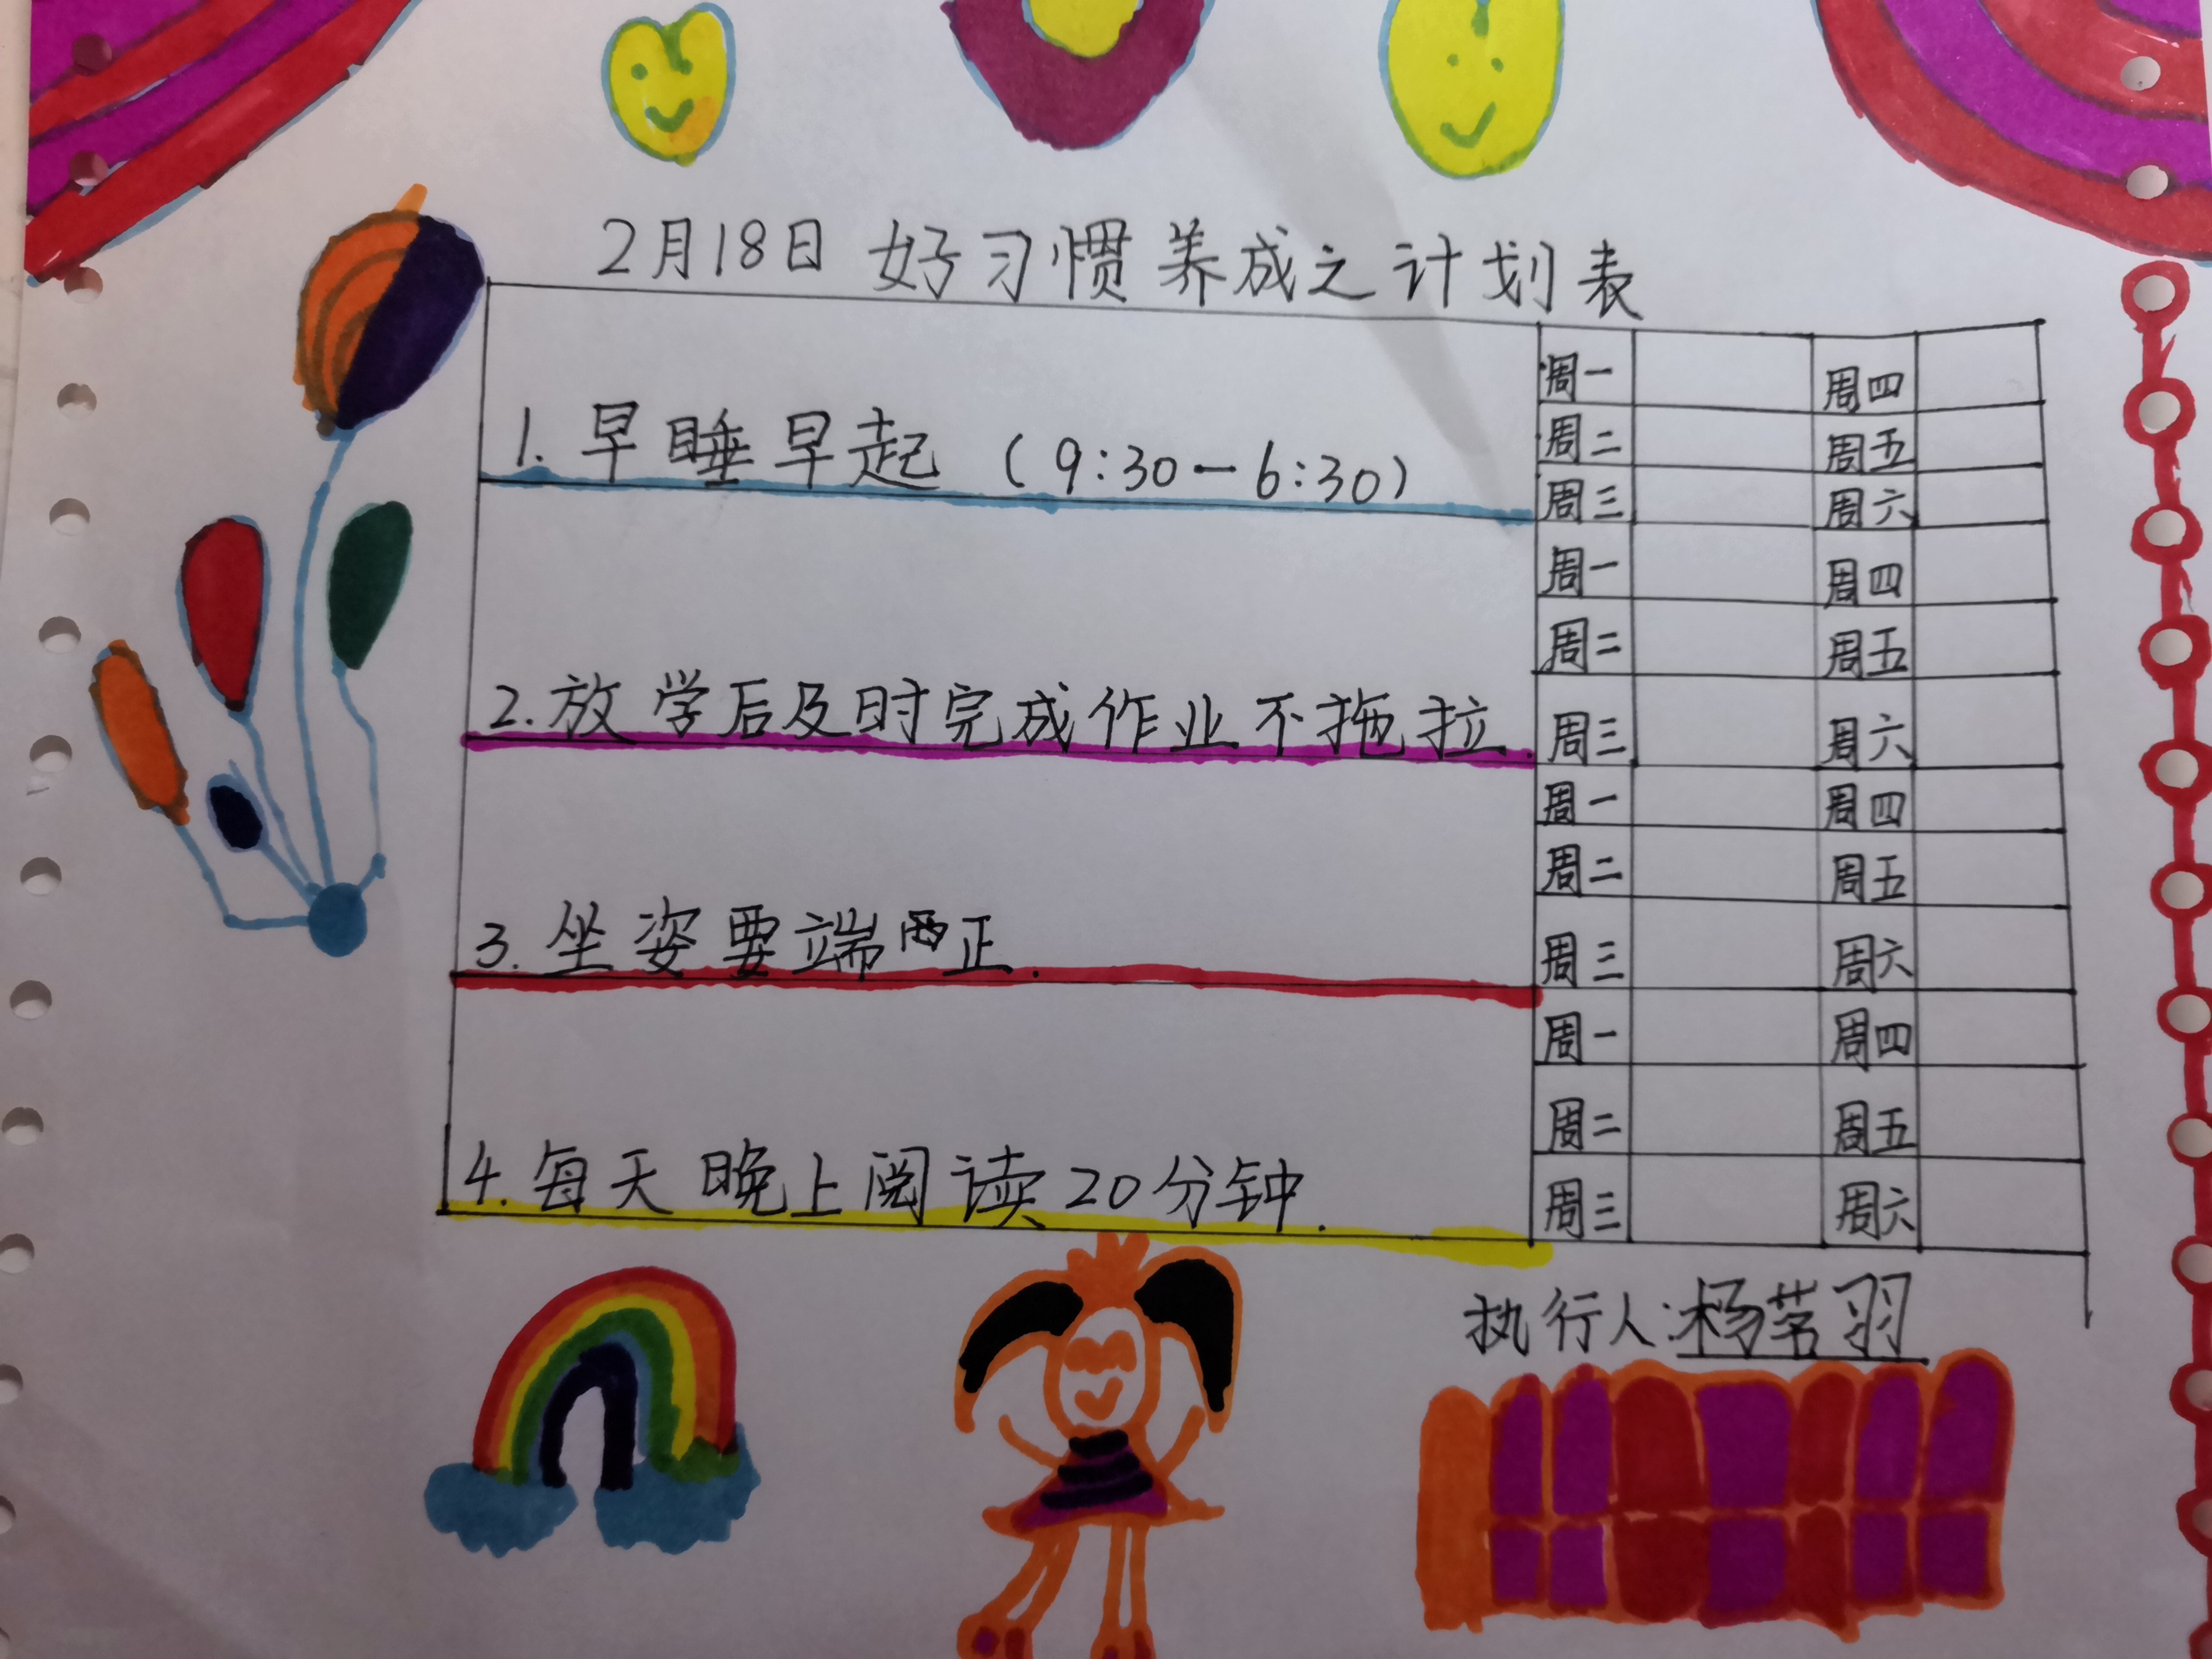 2月18日 好习惯养成之计划表
1. 早睡早起 (9:30—6:30)
周一 周四
周二 周五
周三 周六
2. 放学后及时完成作业不拖拉.
周一 周四
周二 周五
周三 周六
3. 坐姿要端正.
周一 周四
周二 周五
周三 周六
4. 每天晚上阅读20分钟.
周一 周四
周二 周五
周三 周六
执行人:杨茗羽